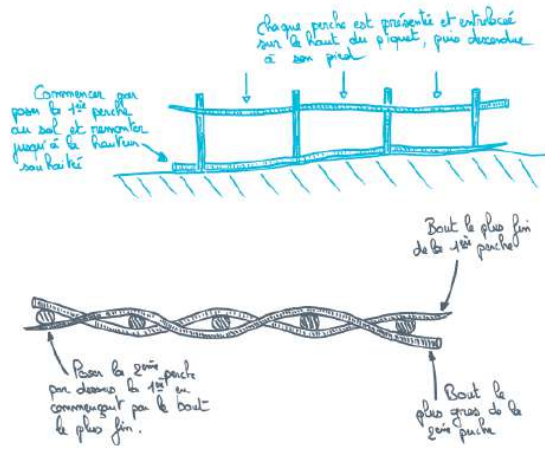 chaque perche est présentée et entrelacée
sur le haut du piquet, puis descendue
à son pied
Commencer par
poser la 1ère perche
au sol et remonter
jusqu'à la hauteur
souhaitée
Bout le plus fin
de la 1ère perche
Poser la 2ème perche
par dessus la 1ère en
commençant par le bout
le plus fin.
Bout le
plus gros de la
2ème perche